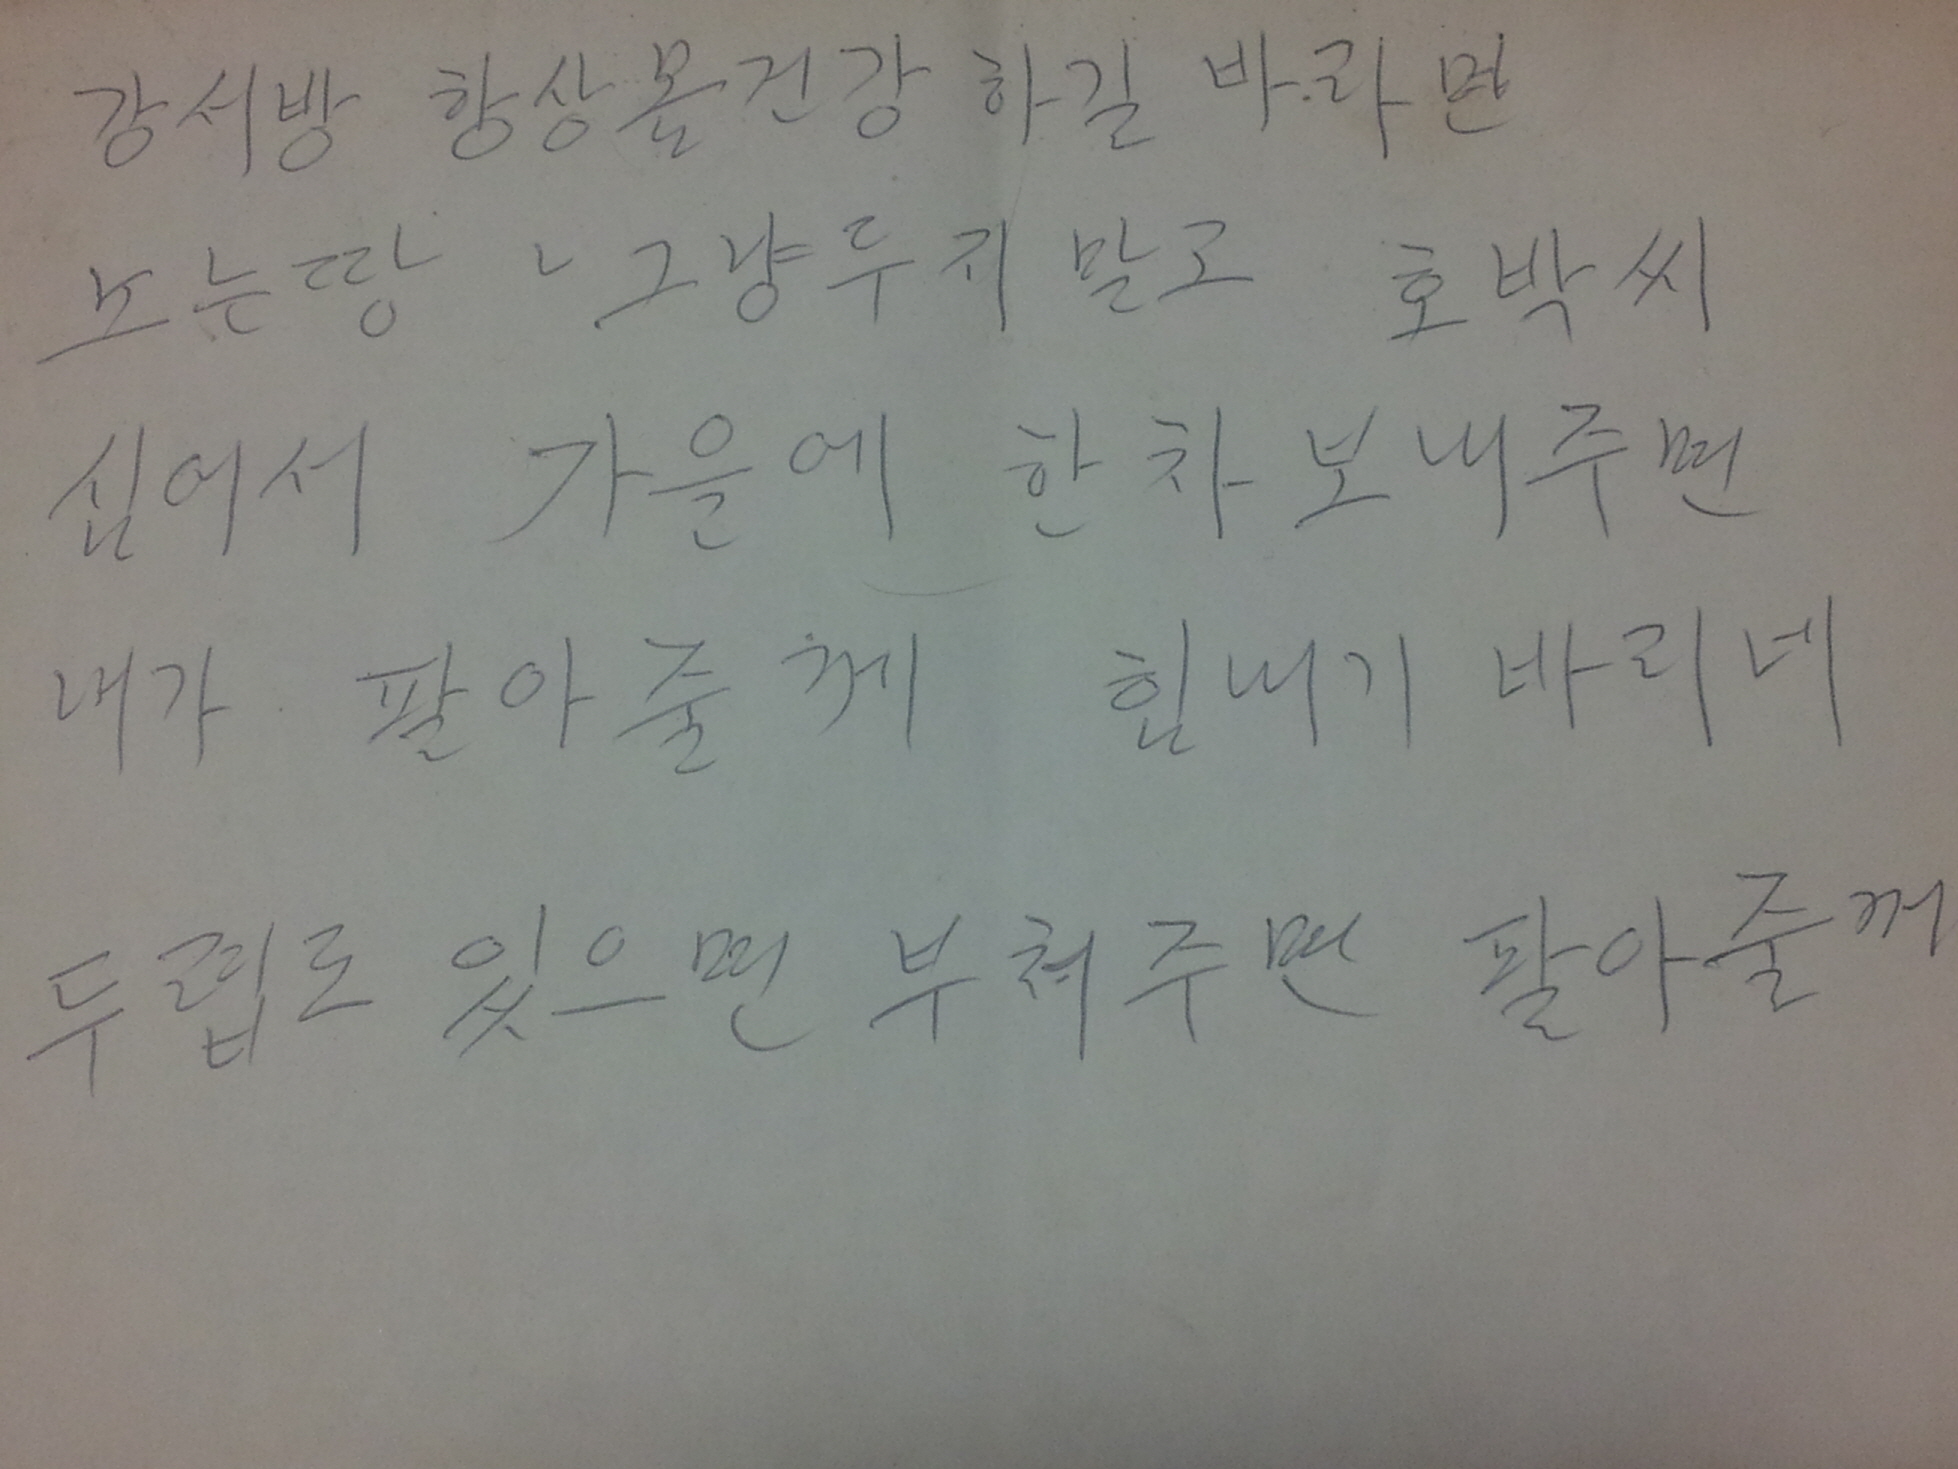 강서방 항상 몸건강 하길 바라면
노는땅 그냥두지 말고 호박씨
심어서 가을에 한차 보내주면
내가 팔아줄께 힘내기 바리네
두릅도 있으면 부쳐주면 팔아줄께